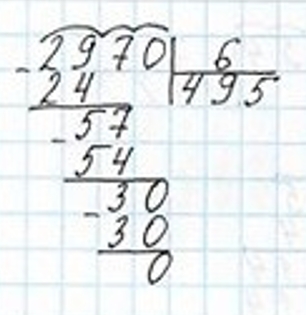 2970 | 6
- 24 | 495
- 57
54
- 30
30
0